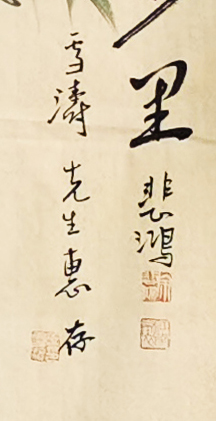 里
悲鴻
雪濤
先生惠存